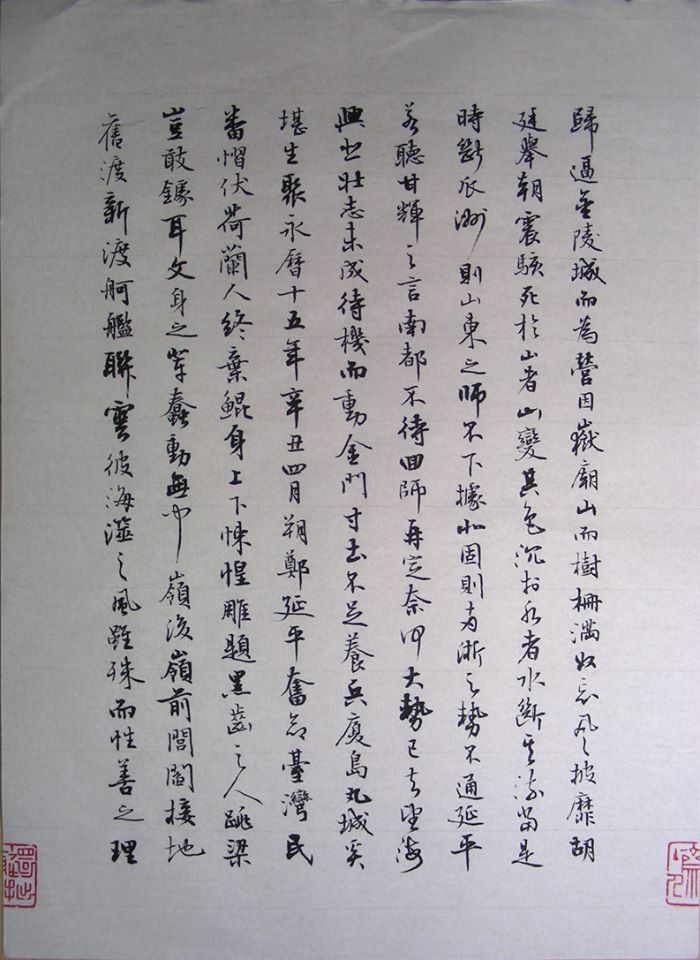 歸逼金陵城而為營因嶽廟山而樹柵滿奴忘風披靡胡
廷舉朝震駭死於山者山變其色沉於水者水斷其流當是
時斷瓜洲則山東之師不下據北固則両浙之勢不通延平
若聽甘輝之言南都不待回師再定奈何大勢已去望海
興悲壯志未成待機而動金門寸土不足養兵廈島丸城奚
堪生聚永曆十五年辛丑四月朔鄭延平奮命臺灣民
番慴伏荷蘭人終棄鯤身上下悚惶雕題黑齒之人跳梁
豈敢鐻耳文身之輩蠢動無由嶺後嶺前閭閻接地
舊渡新渡舸艦聯雲彼海澨之風雖殊而性善之理